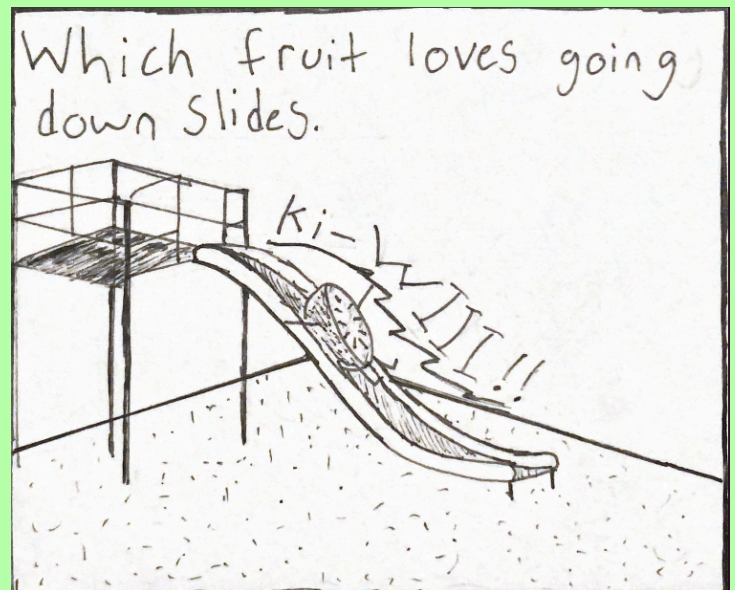 Which fruit loves going
down slides.
Ki-WIII!!